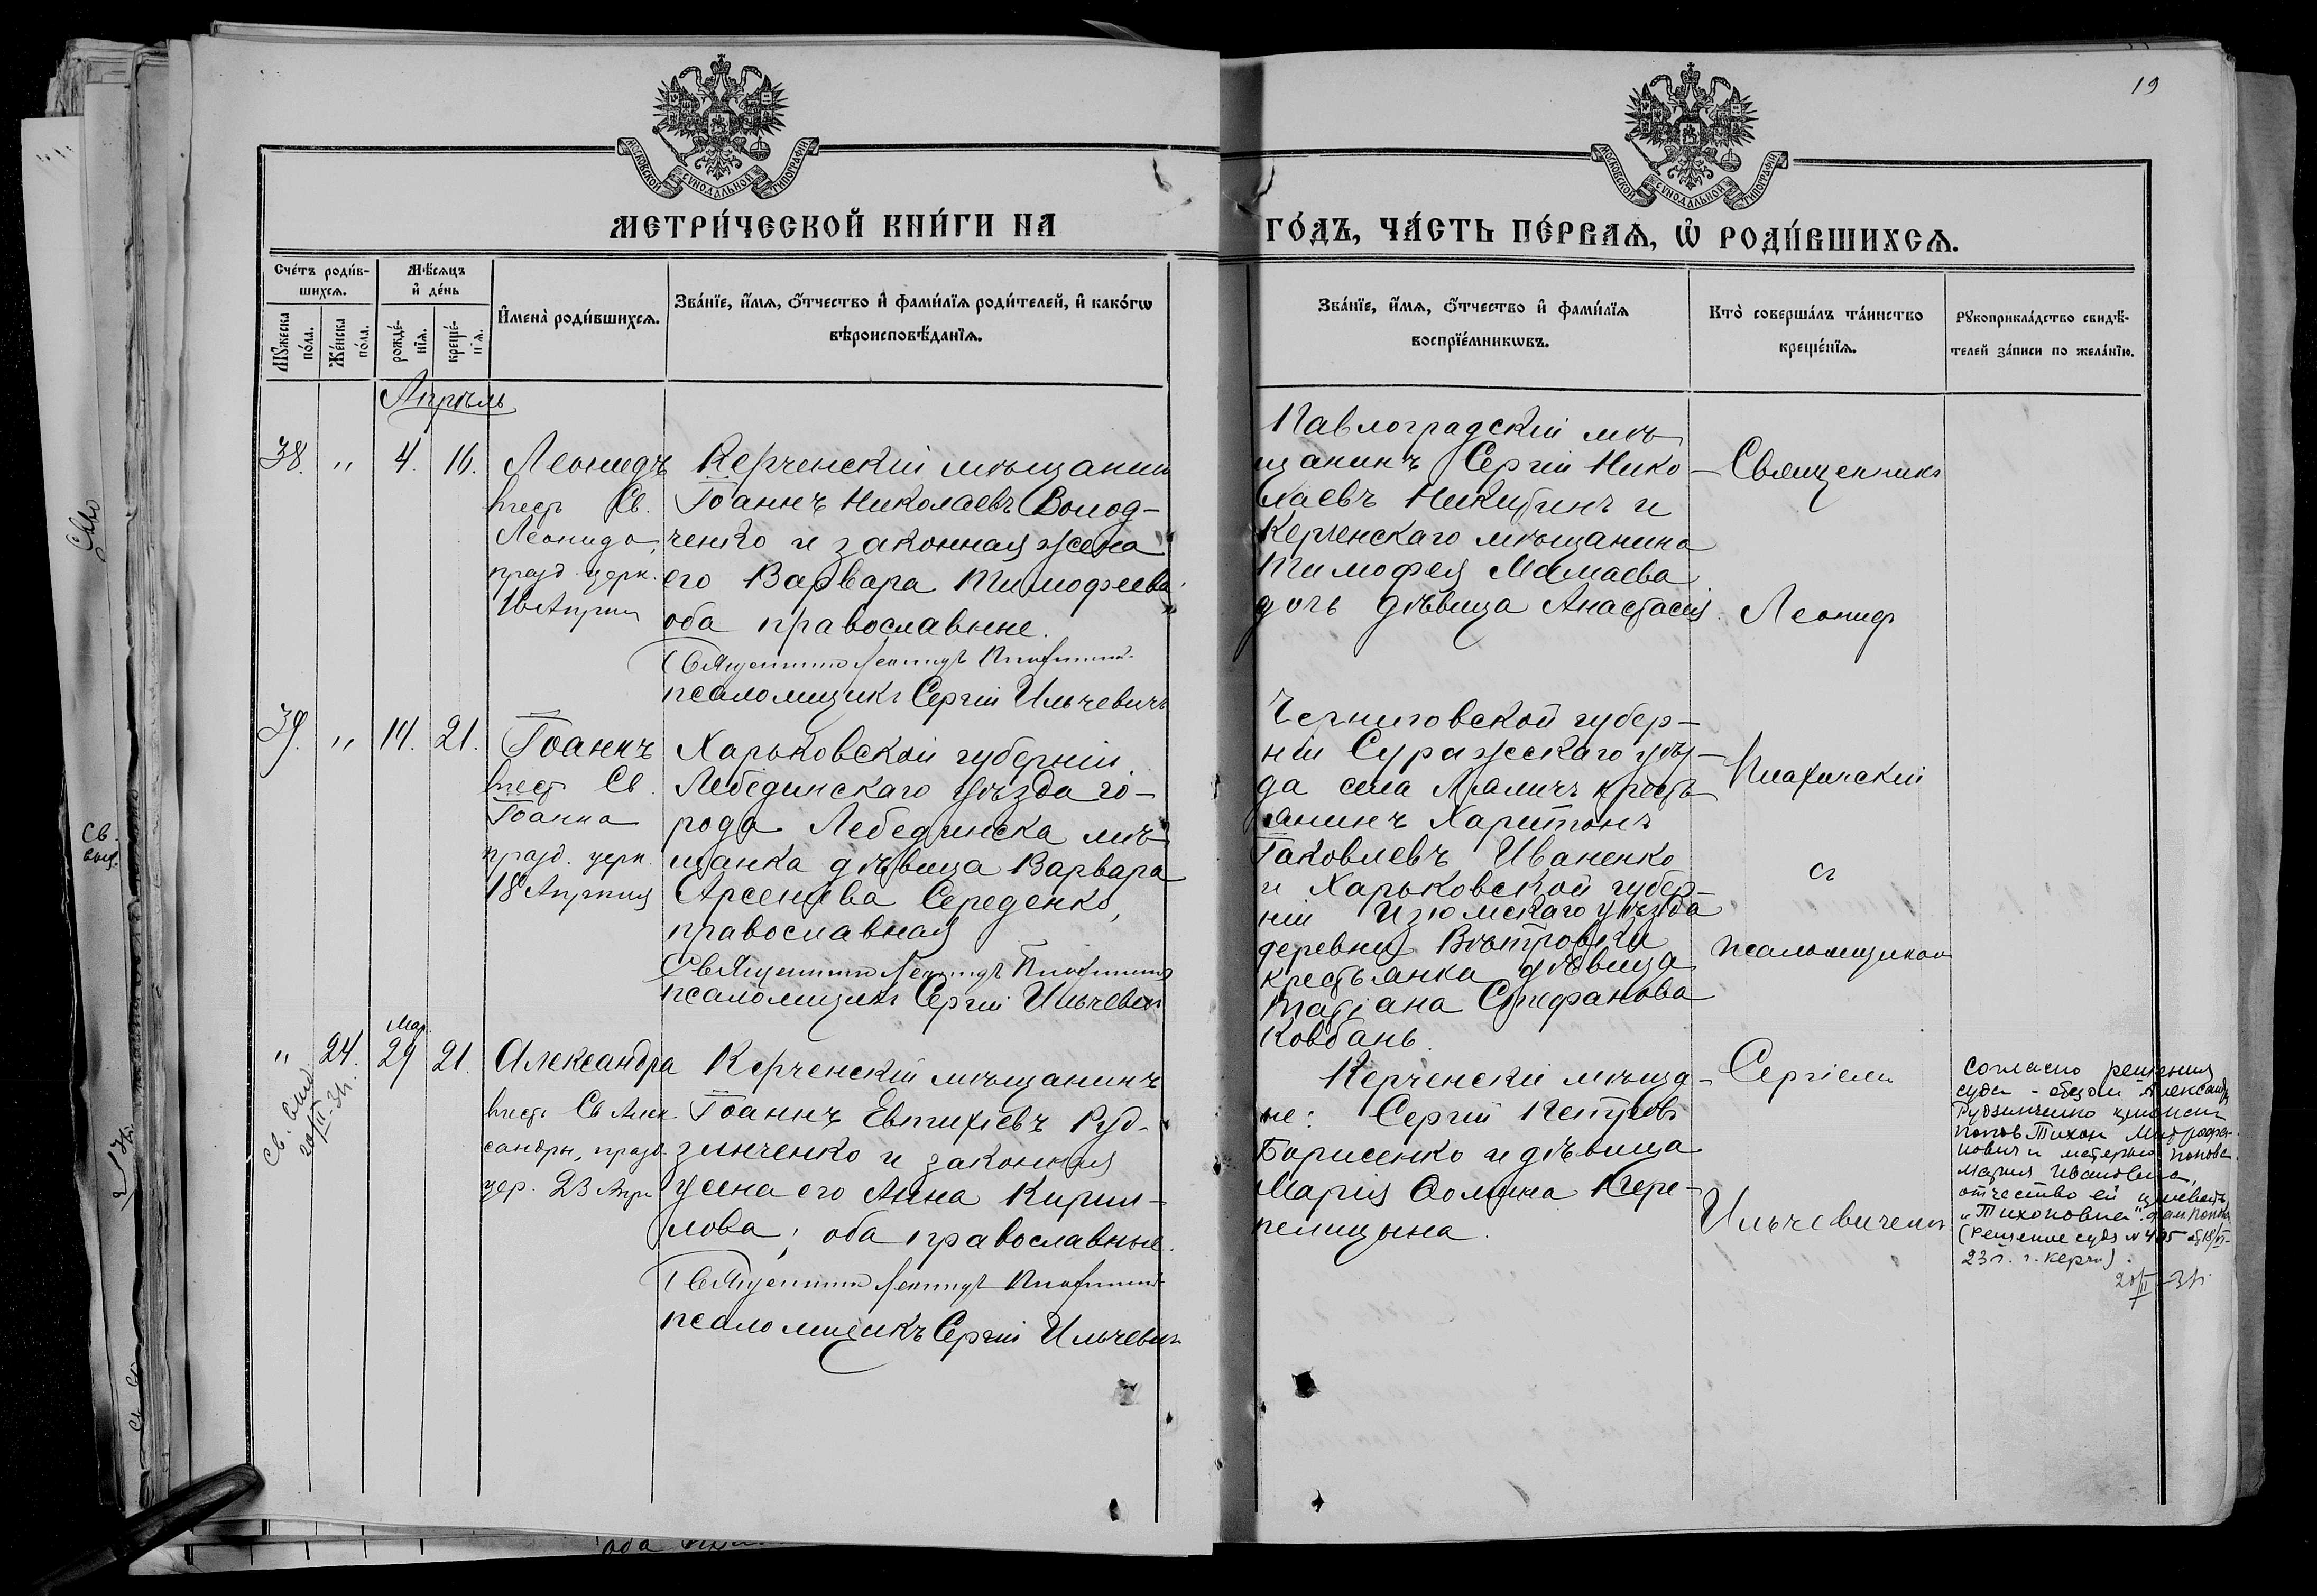 19
МОСКОВСКОЙ СѴНОДАЛЬНОЙ ТИПОГРАФІИ
МОСКОВСКОЙ СѴНОДАЛЬНОЙ ТИПОГРАФІИ
МЕТРИ́ЧЕСКОЙ КНИ́ГИ НА
ГО́ДЪ, ЧА́СТЬ ПЕ́РВАѦ, Ѡ҆ РОДИ́ВШИХСѦ.
Сче́тъ роди́в-
шихсѧ.
Мѣ́сѧцъ
и҆ де́нь
Мꙋ́жеска
по́ла.
Же́нска
по́ла.
рожде́-
нїѧ.
креще́-
нїѧ.
И҆мена̀ роди́вшихсѧ.
Зва́нїе, и҆́мѧ, ѻ҆́тчество и҆ фами́лїѧ роди́телей, и҆ како́гѡ
вѣроисповѣ́данїѧ.
Зва́нїе, и҆́мѧ, ѻ҆́тчество и҆ фами́лїѧ
воспрїе́мникѡвъ.
Кто̀ соверша́лъ та́инство
креще́нїѧ.
Рꙋкоприкла́дство свидѣ́-
телей за́писи по жела́нїю.
Апрѣль
38. " 4. 16.
Леонидъ
въ честь Св.
Леонида,
празд. церк.
16 Апрѣля
Керченскій мѣщанинъ
Іоаннъ Николаевъ Волод-
ченко и законная жена
его Варвара Тимофеева
оба православные.
Священникъ Леонидъ
псаломщикъ Сергій Ильчевичъ
Павлоградскій мѣ-
щанинъ Сергій Нико-
лаевъ Никитинъ и
Керченскаго мѣщанина
Тимофея Мамаева
дочь дѣвица Анастасія.
Священникъ
Леонид
39. " 14. 21.
Іоаннъ
въ честь Св.
Іоанна
празд. церк.
18 Апрѣля
Харьковской губерніи
Лебединскаго уѣзда го-
рода Лебединска мѣ-
щанка дѣвица Варвара
Арсеніева Середенко,
православная
Священникъ Леонидъ
псаломщикъ Сергій Ильчевичъ
Черниговской губер-
ніи Суражскаго уѣз-
да села Ляличъ кресть-
янинъ Харитонъ
Іаковлевъ Иваненко
и Харьковской губер-
ніи Изюмскаго уѣзда
деревни Вѣтровки
крестьянка дѣвица
Татіана Стефанова
Ковбань.
съ
псаломщикомъ
" 24. Мар. 29 21.
Св. выд.
20/III-31г.
Александра
въ честь Св Алек-
сандры, празд.
цер. 23 Апр.
Керченскій мѣщанинъ
Іоаннъ Евтихіевъ Руд-
зинченко и законная
жена его Анна Кирил-
лова; оба православные.
Священникъ Леонидъ
псаломщикъ Сергій Ильчевичъ
Керченскіе мѣща-
не: Сергій Петровъ
Борисенко и дѣвица
Марія Фомина Пере-
пелицына.
Сергіемъ
Ильчевичемъ
Согласно решения
суда
Рудзинченко
Попов Тихон Митрофа-
нович и матерью Попова
Мария Ивановна,
отчество ей
"Тихоновна".
(Решение суда № 405 18/VI-
23 г. г. Керчь).
20/III-31г.
Св.
выд.